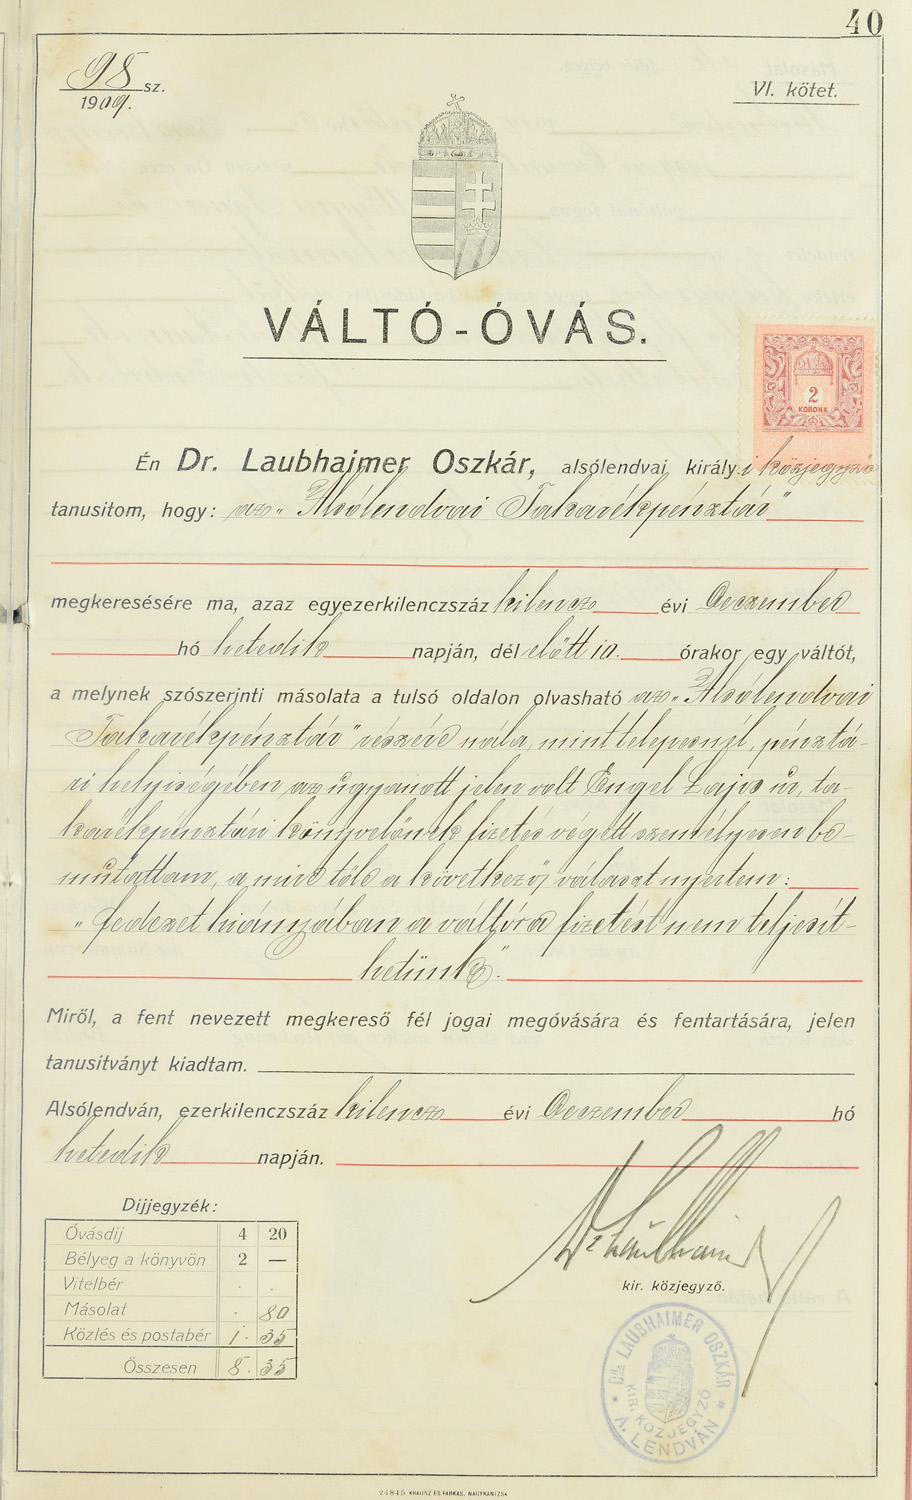 40
98 sz.
1909.
VI. kötet.
VÁLTÓ-ÓVÁS.
2
KORONA
Én Dr. Laubhaimer Oszkár, alsólendvai királyi közjegyző
tanusitom, hogy: az „Alsólendvai Takarékpénztár"
megkeresésére ma, azaz egyezerkilenczszáz kilencz évi deczember
hó hetedik napján, dél előtt 10. órakor egy váltót,
a melynek szószerinti másolata a tulsó oldalon olvasható az „Alsólendvai
Takarékpénztár" részére nála, mint telepesnél, pénztá-
ri helyiségében, az ugyanott jelen volt Engel Lajos úr, ta-
karékpénztári könyvelőnek fizetés végett személyesen be-
mutattam, a mire tőle a következő választ nyertem:
„fedezet hiányában a váltóra fizetést nem teljesít-
hetünk".
Miről, a fent nevezett megkereső fél jogai megóvására és fentartására, jelen
tanusitványt kiadtam.
Alsólendván, ezerkilenczszáz kilencz évi deczember hó
hetedik napján.
Dijjegyzék:
Óvásdij 4 20
Bélyeg a könyvön 2 —
Vitelbér . .
Másolat . 80
Közlés és postabér 1. 35
Összesen 8. 35
Dr Laubhaimer
kir. közjegyző.
DR. LAUBHAIMER OSZKÁR
KIR. KÖZJEGYZŐ
* A. LENDVÁN *
24845 KRAUSZ ÉS FARKAS, NAGYKANIZSA